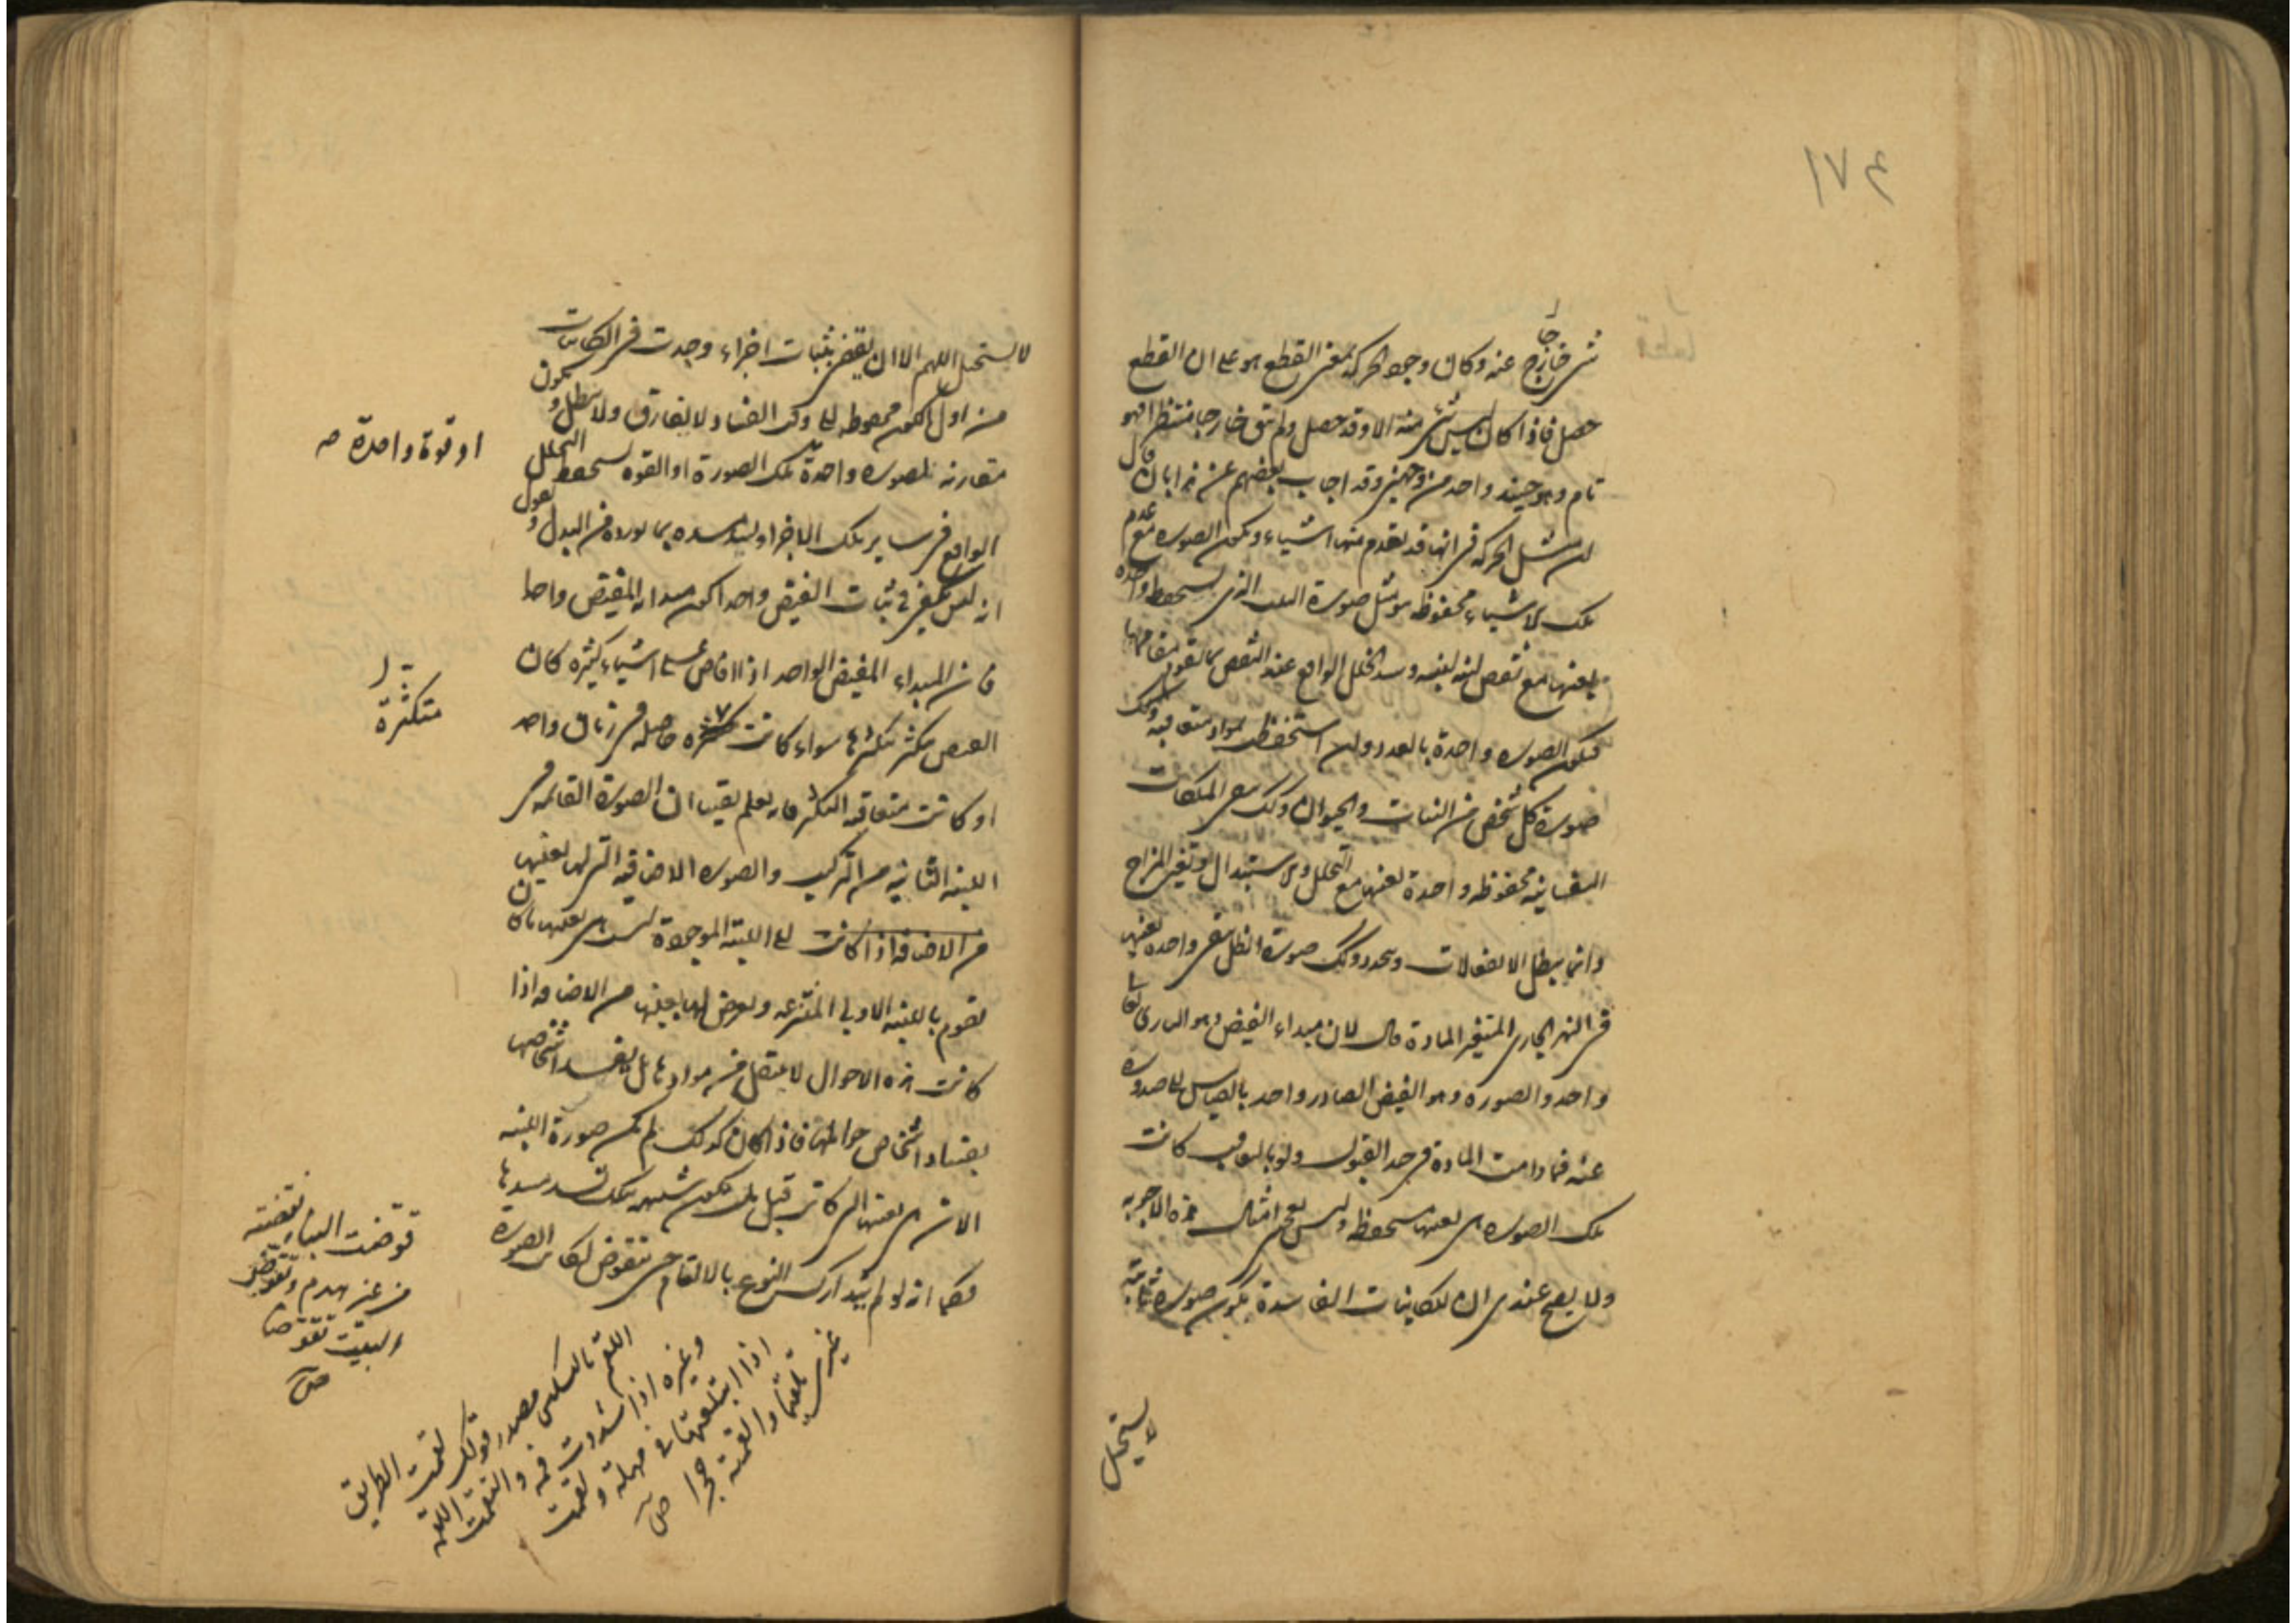 ١٧٤
شئ خارج عنه وكان وجود الحركة بمعنى القطع هو على ان القطع
حصل فاذا كان ليس شئ منه الا وقد حصل ولم تبق خارجا منتظرا فهو
تام وهو حينئذ واحد من وجهين وقد اجاب بعضهم عن هذا بان قال
لن مثل الحركة فى انها قد تعدم منها اشياء وتكون الصورة مع عدم
تلك الاشياء محفوظة هو مثل صورة البيت الذى تستحفظ واحدة
بعينها مع نقص لبنة لبنة وسد الخلل الواقع عند النقص بما يقوم مقامها
فتكون الصورة واحدة بالعدد ولن استحفظت بمواد متعاقبة وكذلك
صورة كل شخص من النبات والحيوان وكذلك تبقى الملكات
النفسانية محفوظة واحدة بعينها مع التحلل والاستبدال وتغير المزاج
وانما يبطل الانفعالات وتتجدد وكذلك صورة الظل تبقى واحدة بعينها
فى النهر الجارى المتغير المادة قال لان مبداء الفيض وهو البارى تعالى
واحد والصورة وهو الفيض الصادر واحد بالقياس الى صدوره
عنه فما دامت المادة فى حد القبول ولو بالتعاقب كانت
تلك الصورة هى بعينها مستحفظة وليس يعجبنى امثال هذه الاجوبة
ولا يصح عندى ان للكاينات الفاسدة يكون صورة ثابتة
لا يستحيل
لا يستحيل اللهم الا ان يقضى بثبات اجزاء وجدت فى الكاينات
من اول الكون محفوظة الى وقت الفساد لا يفارق ولا يبطل و يكون
مقارنة لصورة واحدة تلك الصورة او القوة تستحفظ التحلل
او قوة واحدة صح
الواقع فى ساير تلك الاجزاء وليتد سده بما تورده من البدل و نقول
انه ليس يكفى فى ثبات الفيض واحدا كون مبدا المفيض واحدا
فان المبداء المفيض الواحد اذا افاض على اشياء كثيرة كان
الفيض يتكثر بتكثرها سواء كانت متكثرة حاصلة فى زمان واحد
متكثرة
او كانت متعاقبة التكثر فانه يعلم يقينا ان الصورة القائمة فى
اللبنة الثانية من التركيب والصورة الاضافية التى لها بعينها
من الاضافة اذا كانت الى اللبنة الموجودة ليست هى بعينها ما كان
تقوم باللبنة الاولى المنتزعة وتعرض لها بعينها من الاضافة اذا
كانت هذه الاحوال لا تنتقل من موادها بل يفسد اشخاصها
بفساد اشخاص حواملها فاذا كان كذلك لم يكن صورة اللبنة
الان هى بعينها التى كانت قبل بل تكون شبيهة بتلك تسد مسدها
فكما انه لو لم يتدارك النوع بالالتقام حتى تتقوض لكانت الصورة
قوضت البناء نقضته
من غير هدم وتقوض
البيت تقوضا
ص
اللقم بالسكون مصدر قولك لقمت الطريق
وغيره اذا سددت فمه والتقمت اللقمة
اذا ابتلعتها فى مهلة ولقمت
غيرى تلقيما والقمته حجرا ص